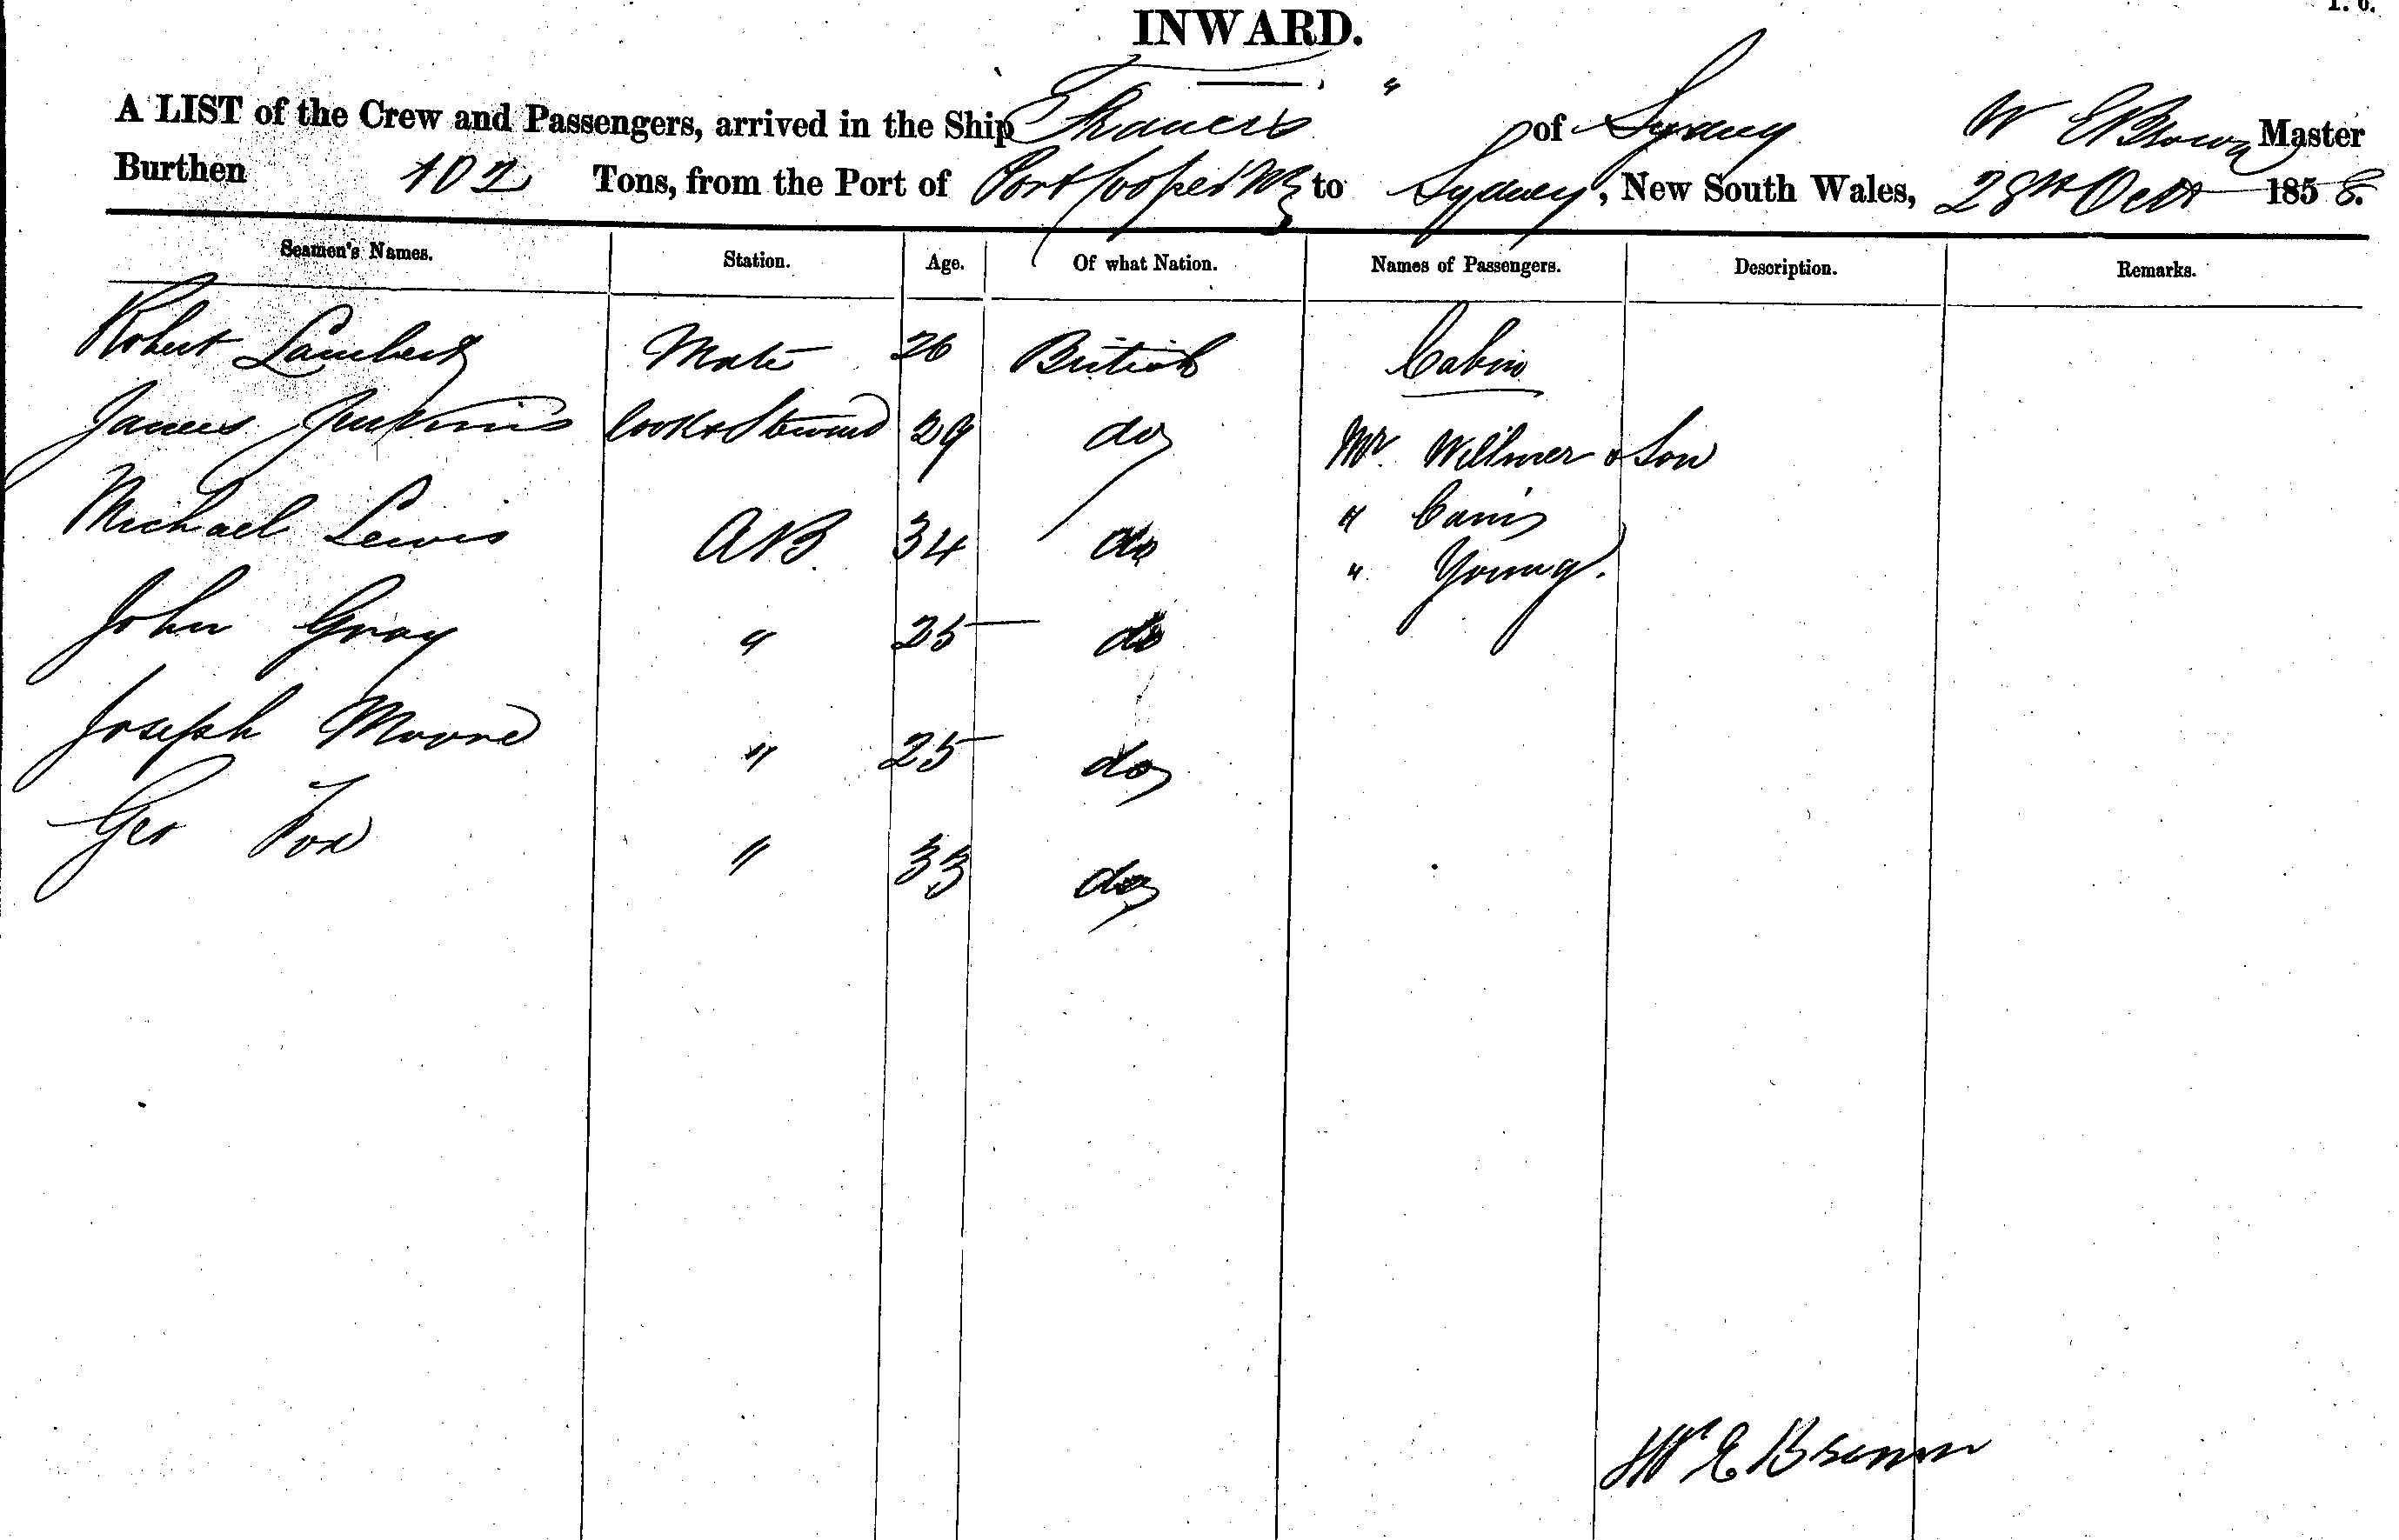 INWARD.
A LIST of the Crew and Passengers, arrived in the Ship "Frances" of Sydney W E Brown Master
Burthen 102 Tons, from the Port of Port Cooper NZ to Sydney, New South Wales, 28th Octr 1858.
Seamen's Names. Station. Age. Of what Nation. Names of Passengers. Description. Remarks.
Robert Lambert Mate 26 British Cabin
James Jenkins Cook & Steward 29 do Mr. Willmer & Son
Michael Lewis AB 34 do "
" Young.
John Gray " 25 do
Joseph Moore " 25 do
Geo Fox " 33 do
W E Brown